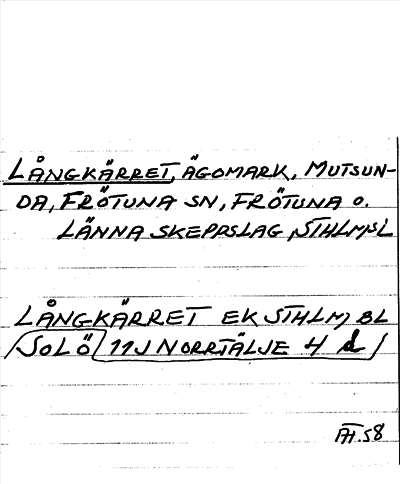 LÅNGKÄRRET, ÄGOMARK, MUTSUN-
DA, FRÖTUNA SN, FRÖTUNA O.
LÄNNA SKEPPSLAG, STHLMSL
LÅNGKÄRRET EK STHLM, BL
SOLÖ 11J NORRTÄLJE 4 d
58